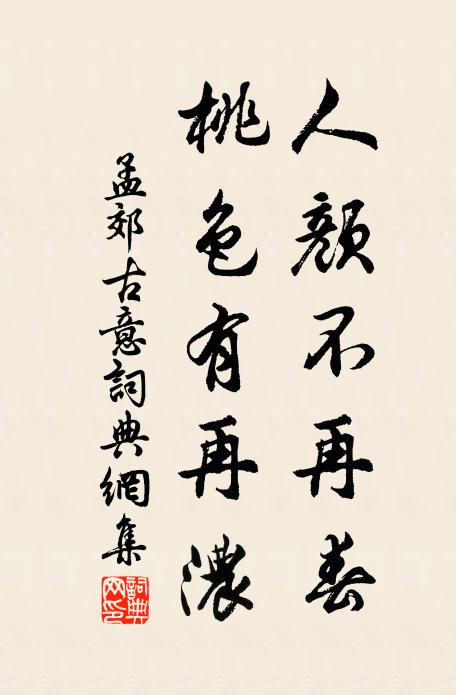 人顏不再春
桃色有再濃
孟郊古意詞典網集
詞典网印